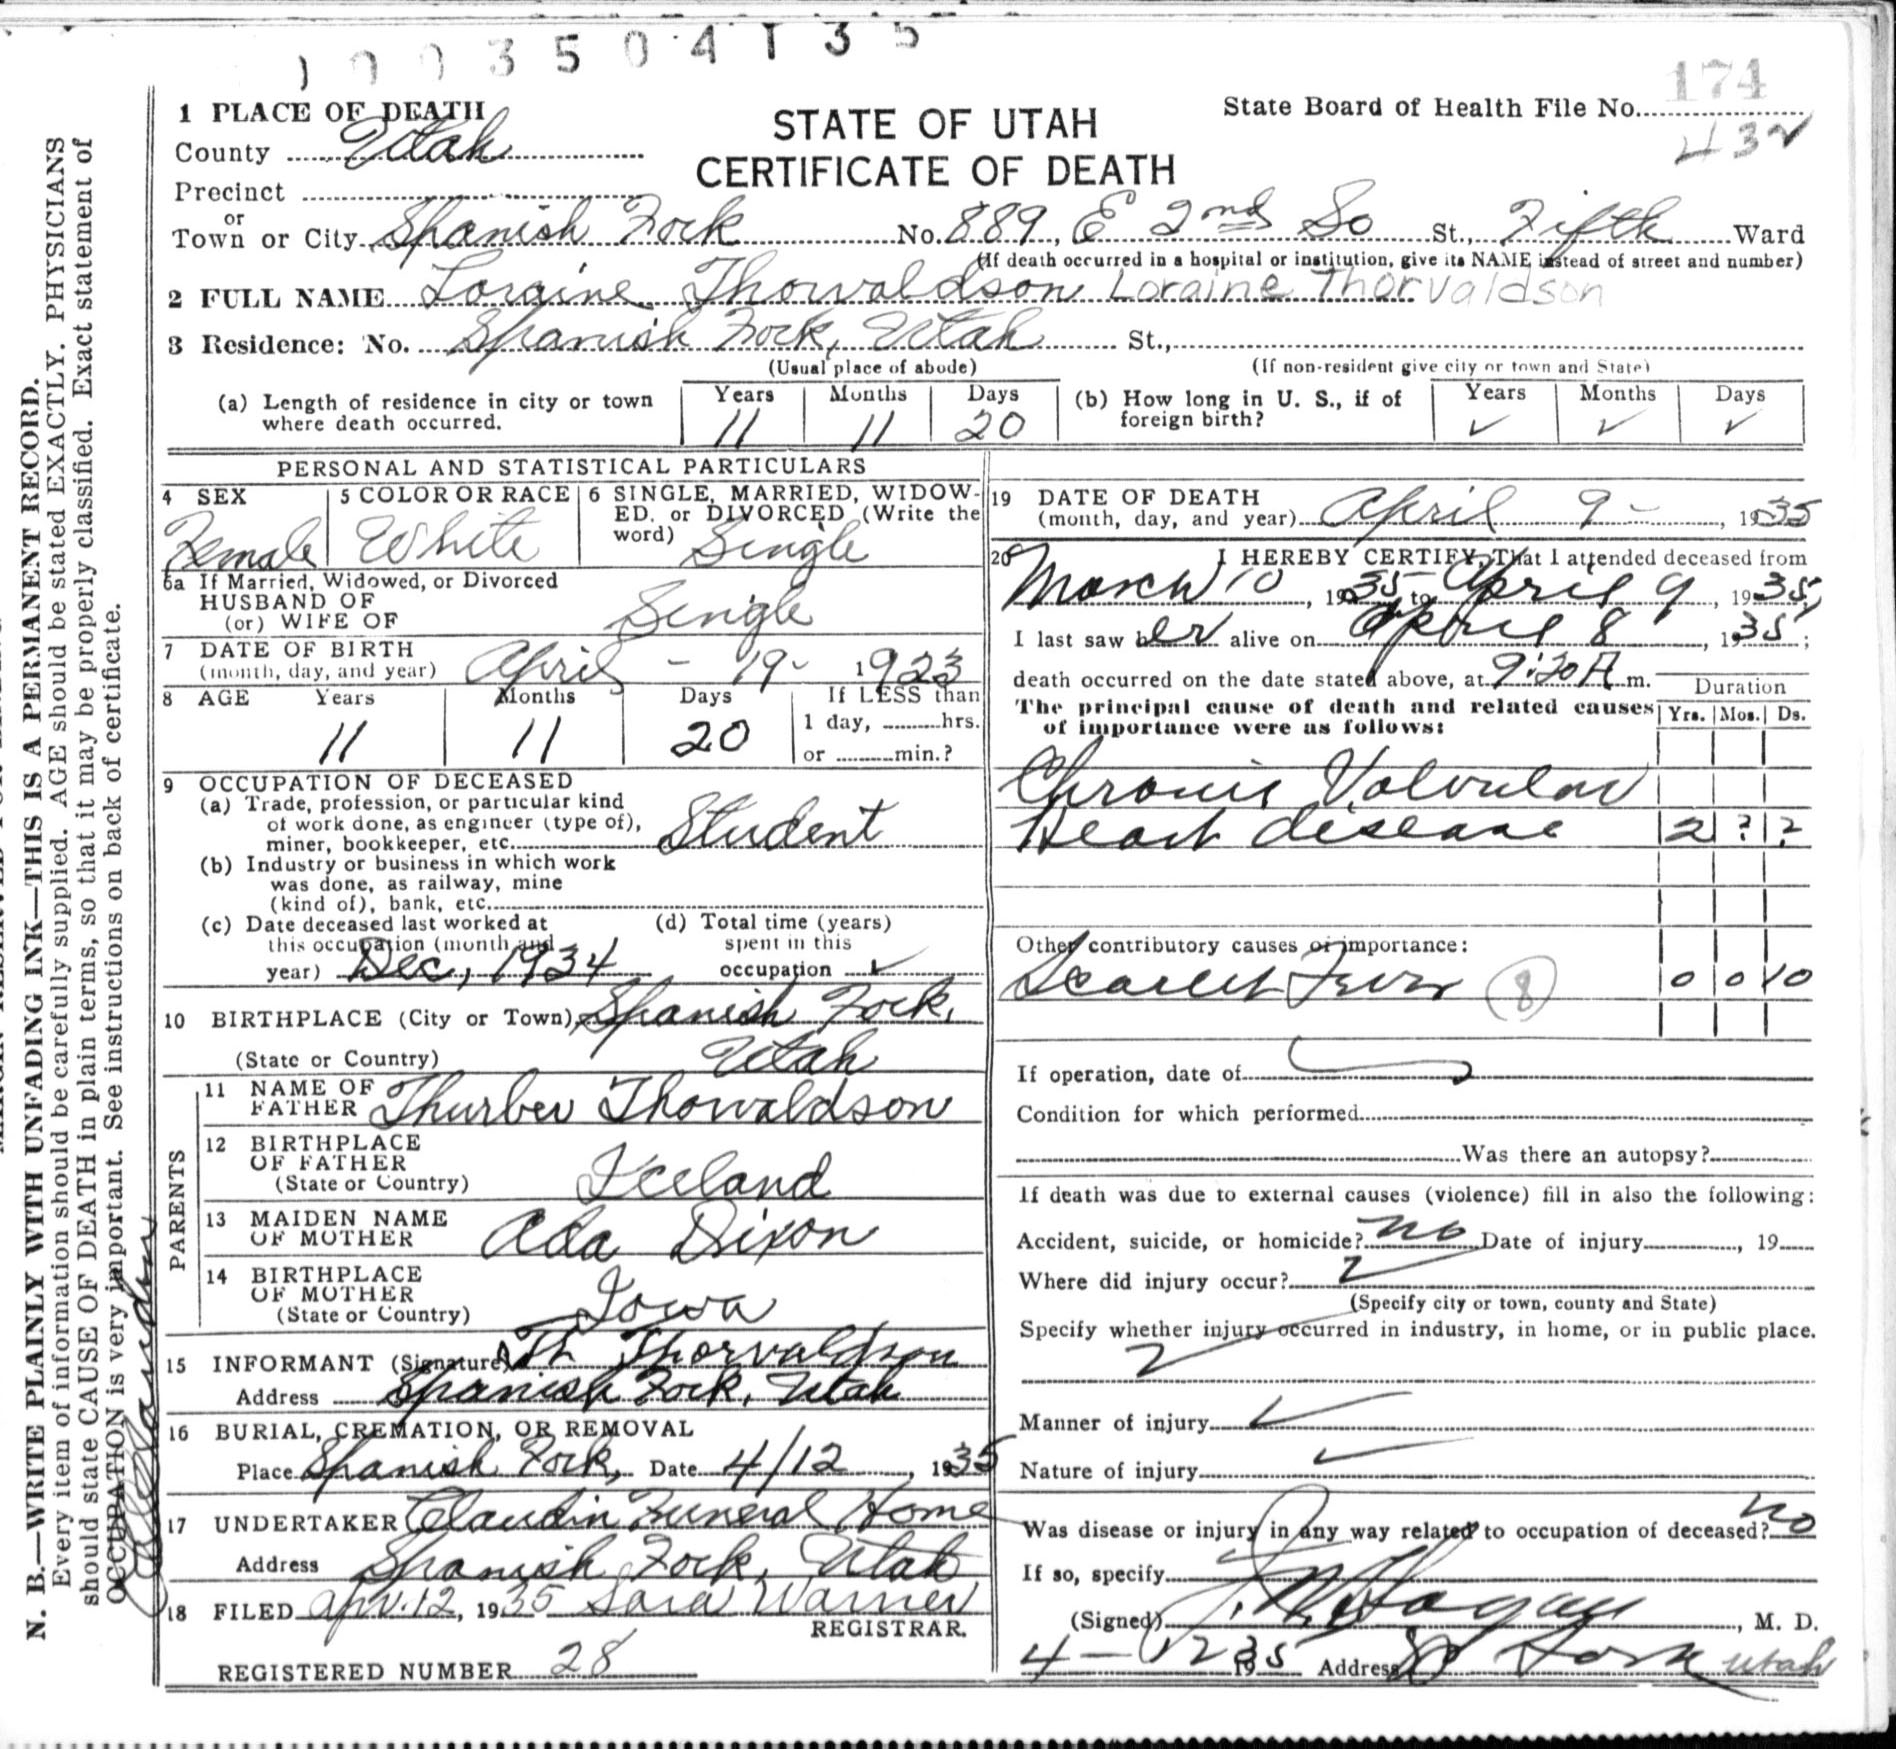 1003504135
174
1 PLACE OF DEATH
STATE OF UTAH
State Board of Health File No.
432
County Utah
CERTIFICATE OF DEATH
Precinct
or
Town or City Spanish Fork No. 889, E 2nd So St., Fifth Ward
(If death occurred in a hospital or institution, give its NAME instead of street and number)
2 FULL NAME Loraine Thorvaldson Loraine Thorvaldson
3 Residence: No. Spanish Fork, Utah St.,
(Usual place of abode) (If non-resident give city or town and State)
(a) Length of residence in city or town where death occurred. Years 11 Months 11 Days 20
(b) How long in U. S., if of foreign birth? Years ✓ Months ✓ Days ✓
PERSONAL AND STATISTICAL PARTICULARS
4 SEX Female
5 COLOR OR RACE White
6 SINGLE, MARRIED, WIDOW-
ED, or DIVORCED (Write the
word) Single
6a If Married, Widowed, or Divorced
HUSBAND OF
(or) WIFE OF Single
7 DATE OF BIRTH
(month, day, and year) April - 19 - 1923
8 AGE Years 11 Months 11 Days 20 If LESS than
1 day, hrs.
or min.?
9 OCCUPATION OF DECEASED
(a) Trade, profession, or particular kind
of work done, as engineer (type of),
miner, bookkeeper, etc. Student
(b) Industry or business in which work
was done, as railway, mine
(kind of), bank, etc.
(c) Date deceased last worked at
this occupation (month and
year) Dec, 1934
(d) Total time (years)
spent in this
occupation ✓
10 BIRTHPLACE (City or Town) Spanish Fork,
(State or Country) Utah
PARENTS
11 NAME OF
FATHER Thurber Thorvaldson
12 BIRTHPLACE
OF FATHER
(State or Country) Iceland
13 MAIDEN NAME
OF MOTHER Ada Dixon
14 BIRTHPLACE
OF MOTHER
(State or Country) Iowa
15 INFORMANT (Signature) Th Thorvaldson
Address Spanish Fork, Utah
16 BURIAL, CREMATION, OR REMOVAL
Place Spanish Fork, Date 4/12, 1935
17 UNDERTAKER Claudin Funeral Home
Address Spanish Fork, Utah
18 FILED Apr. 12, 1935 Sara Warner
REGISTRAR.
REGISTERED NUMBER 28
19 DATE OF DEATH
(month, day, and year) April 9 -, 1935
20 I HEREBY CERTIFY, That I attended deceased from
March 10, 1935 to April 9, 1935,
I last saw her alive on April 8, 1935;
death occurred on the date stated above, at 9:20 A m.
The principal cause of death and related causes
of importance were as follows:
Duration
Yrs. Mos. Ds.
Chronic Valvular
Heart disease 2 ? ?
Other contributory causes of importance:
Scarlet Fever (8) 0 0 10
If operation, date of
Condition for which performed
Was there an autopsy?
If death was due to external causes (violence) fill in also the following:
Accident, suicide, or homicide? no Date of injury , 19
Where did injury occur?
(Specify city or town, county and State)
Specify whether injury occurred in industry, in home, or in public place.
Manner of injury ✓
Nature of injury ✓
Was disease or injury in any way related to occupation of deceased? no
If so, specify
(Signed) Hagan, M. D.
4-12 1935 Address Sp Fork Utah
N. B.—WRITE PLAINLY WITH UNFADING INK—THIS IS A PERMANENT RECORD.
Every item of information should be carefully supplied. AGE should be stated EXACTLY. PHYSICIANS
should state CAUSE OF DEATH in plain terms, so that it may be properly classified. Exact statement of
OCCUPATION is very important. See instructions on back of certificate.